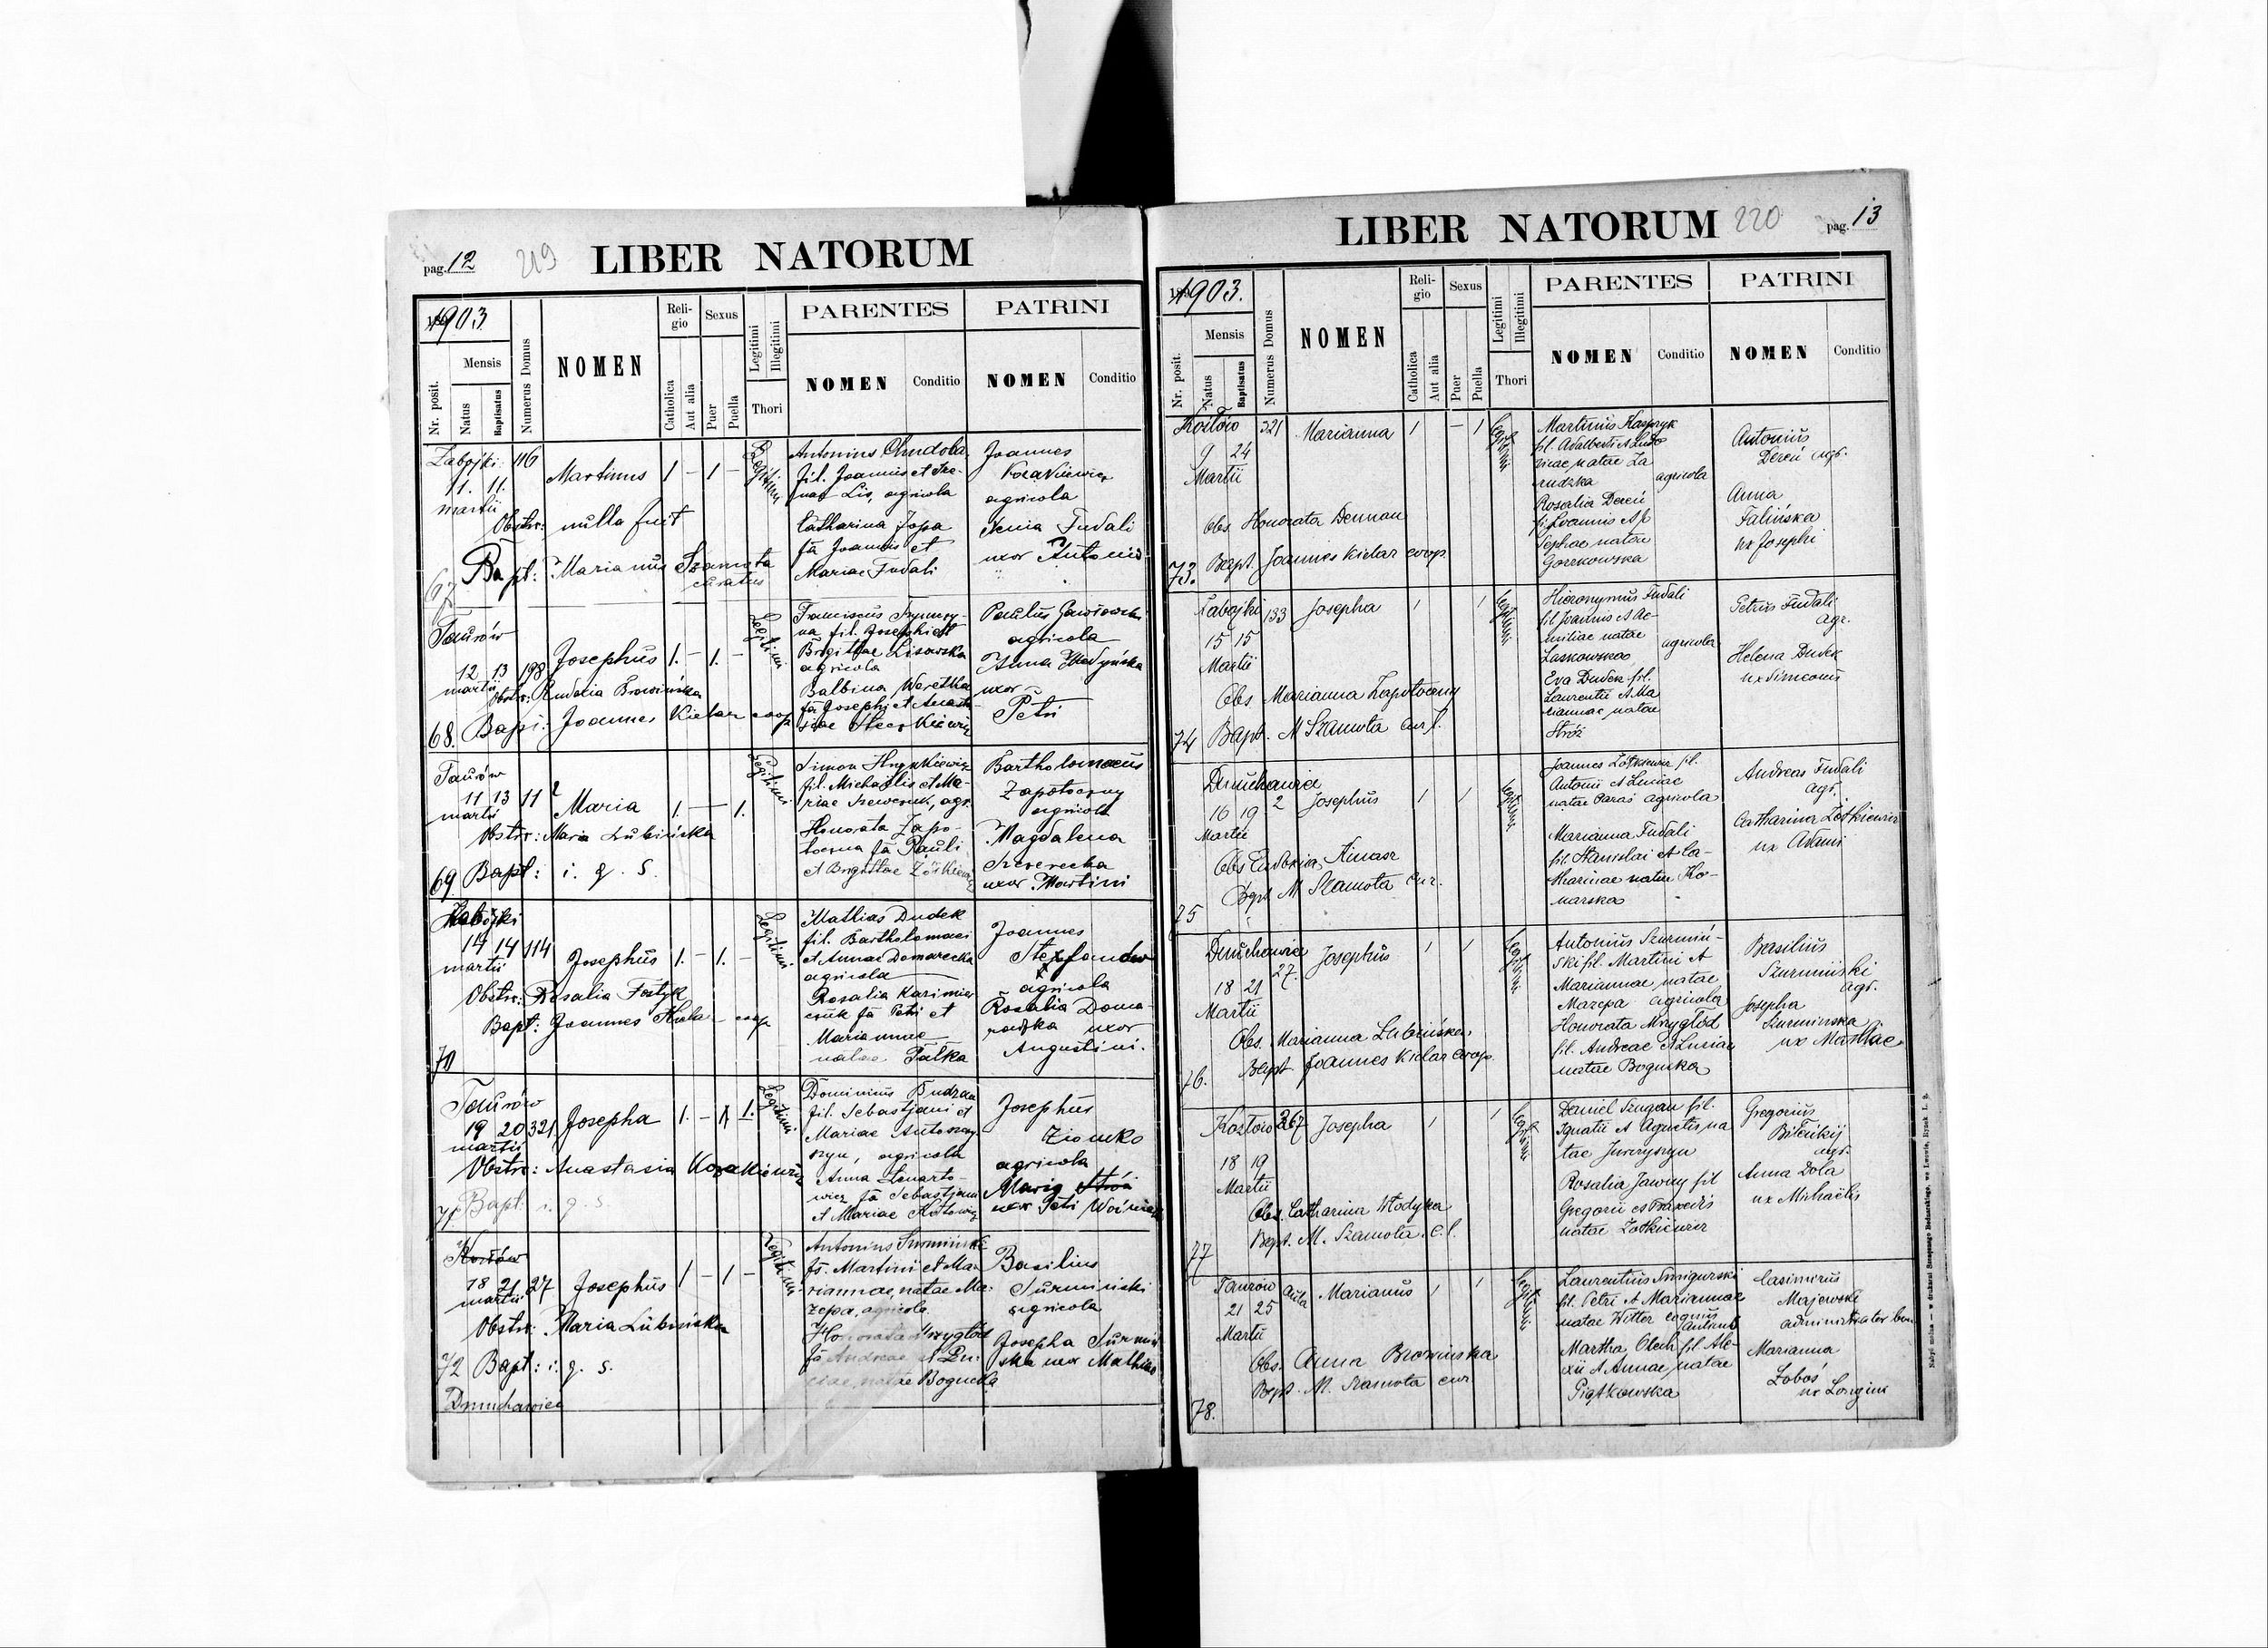 pag. 12 219 LIBER NATORUM
1903
Nr. posit.
Mensis
Natus
Baptisatus
Numerus Domus
NOMEN
Reli-
gio
Catholica
Aut alia
Sexus
Puer
Puella
Legitimi
Illegitimi
Thori
PARENTES
NOMEN Conditio
PATRINI
NOMEN Conditio
Zabojki 116
11. 11.
martii
Martinus 1 - 1 -
Legitimi
Obstr: nulla fuit
67 Bapt: Marianus Szamota
curatus
Antonius Chudoba
fil. Joannis et
Lis, agricola
Catharina
fa Joannis et
Mariae Fudali
Joannes
agricola
Fudali
uxor Antonii
Taurów
12 13 198
martii
Josephus 1. - 1. -
Legitimi
Obstr: Eudoxia Browińska
68. Bapt: Joannes Kielar coop
Franciscus
na fil. Josephi et
Brigittae Lisowska
agricola
Balbina Weretka
fa Josephi et Anasta
siae
Paulus Jaworski
agricola
Anna
uxor
Petri
Taurów
11 13 11
martii
Maria 1. - 1.
Legitimi
Obstr: Maria Lubińska
69. Bapt: i. q. s.
Simon Hnatkiewicz
fil. Michaëlis et Ma-
riae Szewczuk, agr.
Honorata Zapo-
toczna fa Pauli
et Brigittae
Bartholomaeus
Zapotoczny
agricola
Magdalena
uxor Martini
Zabojki
14 14 114
martii
Josephus 1. - 1. -
Legitimi
Obstr: Rosalia
Bapt: Joannes coop
70
Mathias Dudek
fil. Bartholomaei
et Annae Domarecka
agricola
Rosalia Kazimier
czuk fa Petri et
Mariannae
natae Pałka
Joannes
agricola
Rosalia Doma-
radzka uxor
Augustini.
Taurów
19 20 321
martii
Josepha 1. - 1.
Legitimi
Obstr: Anastasia Kozakiewicz
71 Bapt: i. q. s.
fil. Sebastjani et
Mariae
szyn, agricola
Anna Lenarto-
wicz fa Sebastjani
et Mariae
Josephus
Zionko
agricola
Maria
uxor Petri
Kozłów
18 21 27
martii
Josephus 1 - 1 -
Legitimi
Obstr: Maria Lubińska
72 Bapt: i. q. s.
Dmuchawiec
Antonius
fs. Martini et Ma-
riannae, natae Ma-
zepa, agricola
Honorata Mrygłod
fa Andreae et Lu-
ciae, natae Bogucka
Basilius
Surmiński
agricola
Josepha Surmiń
ska uxor Mathiae
LIBER NATORUM 220 pag. 13
1903.
Nr. posit.
Mensis
Natus
Baptisatus
Numerus Domus
NOMEN
Reli-
gio
Catholica
Aut alia
Sexus
Puer
Puella
Legitimi
Illegitimi
Thori
PARENTES
NOMEN Conditio
PATRINI
NOMEN Conditio
321 Marianna 1 - 1
9 24
Martii
Obs. Honorata Dennan
73. Bapt. Joannes Kielar coop.
Martinus Kasprzyk
fil. Adalberti et Ludo
vicae natae Za
rudzka agricola
Rosalia Dereń
fil. Joannis et Jo
sephae natae
Gorzkowska
Antonius
Dereń agr.
Anna
Falińska
ux Josephi
Zabojki 133 Josepha 1 1
15 15
Martii
Obs. Marianna Zapotoczny
74 Bapt. M Szamota cur l.
Hieronymus Fudali
fil Joannis et Ae-
miliae natae
Laskowska agricola
Eva Dudek fil.
Laurentii et Ma
riannae natae
Stróż
Petrus Fudali
agr.
Helena Dudek
ux Simeonis
Dmuchawiec
16 19 2 Josephus 1 1
Martii
Obs Eudoxia
75 Bapt. M Szamota cur.
Joannes Żółkiewicz fil.
Antonii et Luciae
natae Paraś agricola
Marianna Fudali
fil Stanislai et Ca-
tharinae natae Ko-
narska
Andreas Fudali
agr.
Catharina Żółkiewicz
ux Adami
Dmuchawiec
27. Josephus 1 1
18 21
Martii
Obs. Marianna Lubińska
76. Bapt. Joannes Kielar coop.
Antonius Szurmiń-
ski fil. Martini et
Mariannae natae
Mazepa agricola
Honorata Mrygłod
fil. Andreae et Luciae
natae Bogucka
Basilius
Szurmiński
agr.
Josepha
Szurminska
ux Mathiae
Kozłów 267 Josepha 1 1
18 19
Martii
Obs. Catharina Włodyka
77 Bapt. M. Szamota c. l.
Daniel Szugan fil.
Ignatii et Agnetis na
tae Jurczyszyn
Rosalia Jawny fil
Gregorii et Praxedis
natae Żółkiewicz
Gregorius
agr.
Anna Dola
ux Michaëlis
Taurów Aula Marianus 1 1
21 25
Martii
Obs. Anna Browinska
78. Bapt. M. Szamota cur
Laurentius Smigurski
fil. Petri et Mariannae
natae Witter
Martha Olech fil Ale-
xii et Annae natae
Piątkowska
Casimirus
Majewski
administrator
Marianna
Łoboś
ux Longini